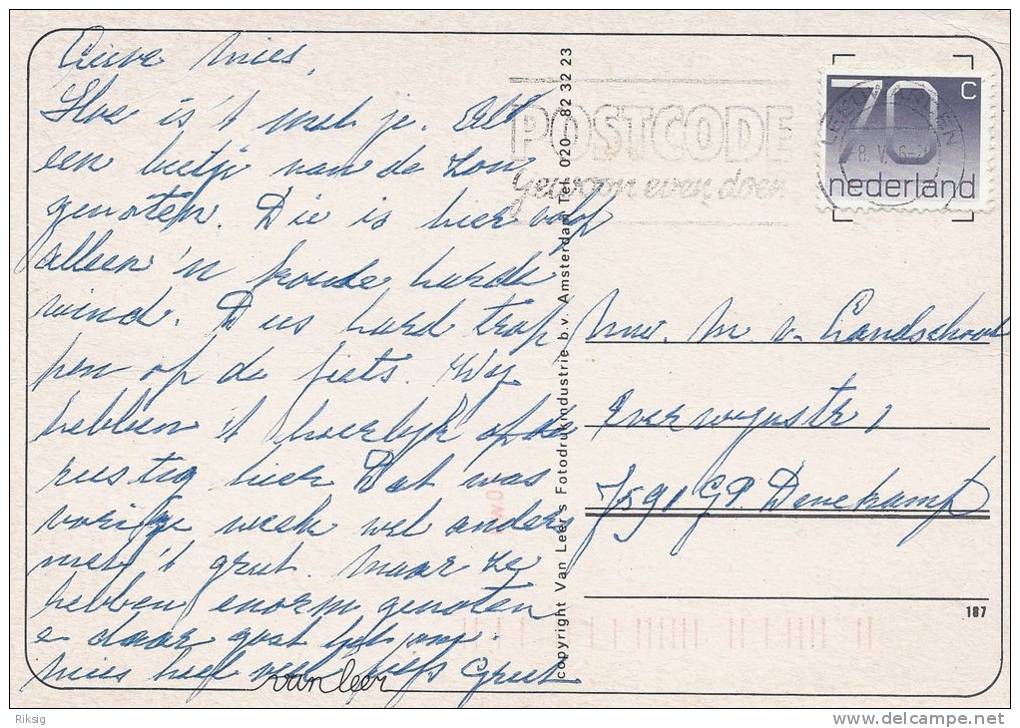 Lieve Mies,
Hoe is 't met je.
een beetje van de zon
genoten. Die is hier volop
alleen 'n koude harde
wind. Dus hard trap
pen op de fiets. Wij
hebben 't heerlijk op de
rustig hier Dat was
vorige week wel anders
met 't grut. Maar ze
hebben enorm genoten
e daar gaat het om.
Mies heel veel liefs Greet
van leer
copyright Van Leer's Fotodrukindustrie b.v. Amsterdam Tel. 020 - 82 32 23
POSTCODE
Gewoon even doen
70 c
nederland
Mw. M. v. Landschoot
1
7591 GP. Denekamp
187
Riksig
delcampe.net